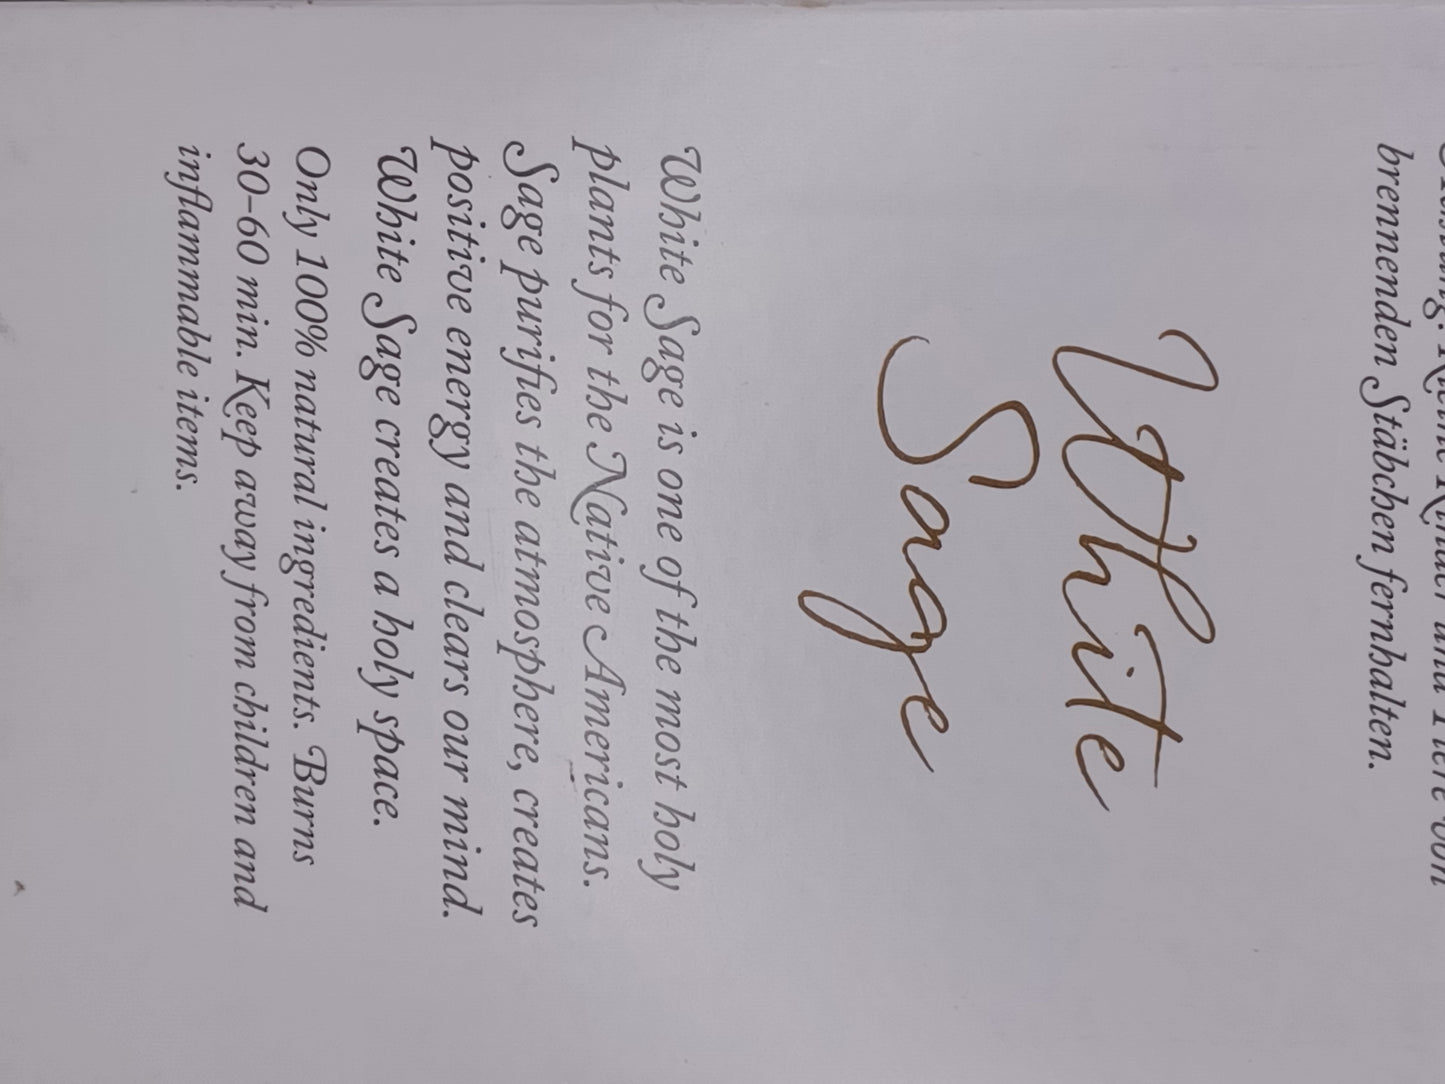 Kinder und Tiere von
brennenden Stäbchen fernhalten.
White
Sage
White Sage is one of the most holy
plants for the Native Americans.
Sage purifies the atmosphere, creates
positive energy and clears our mind.
White Sage creates a holy space.
Only 100% natural ingredients. Burns
30-60 min. Keep away from children and
inflammable items.